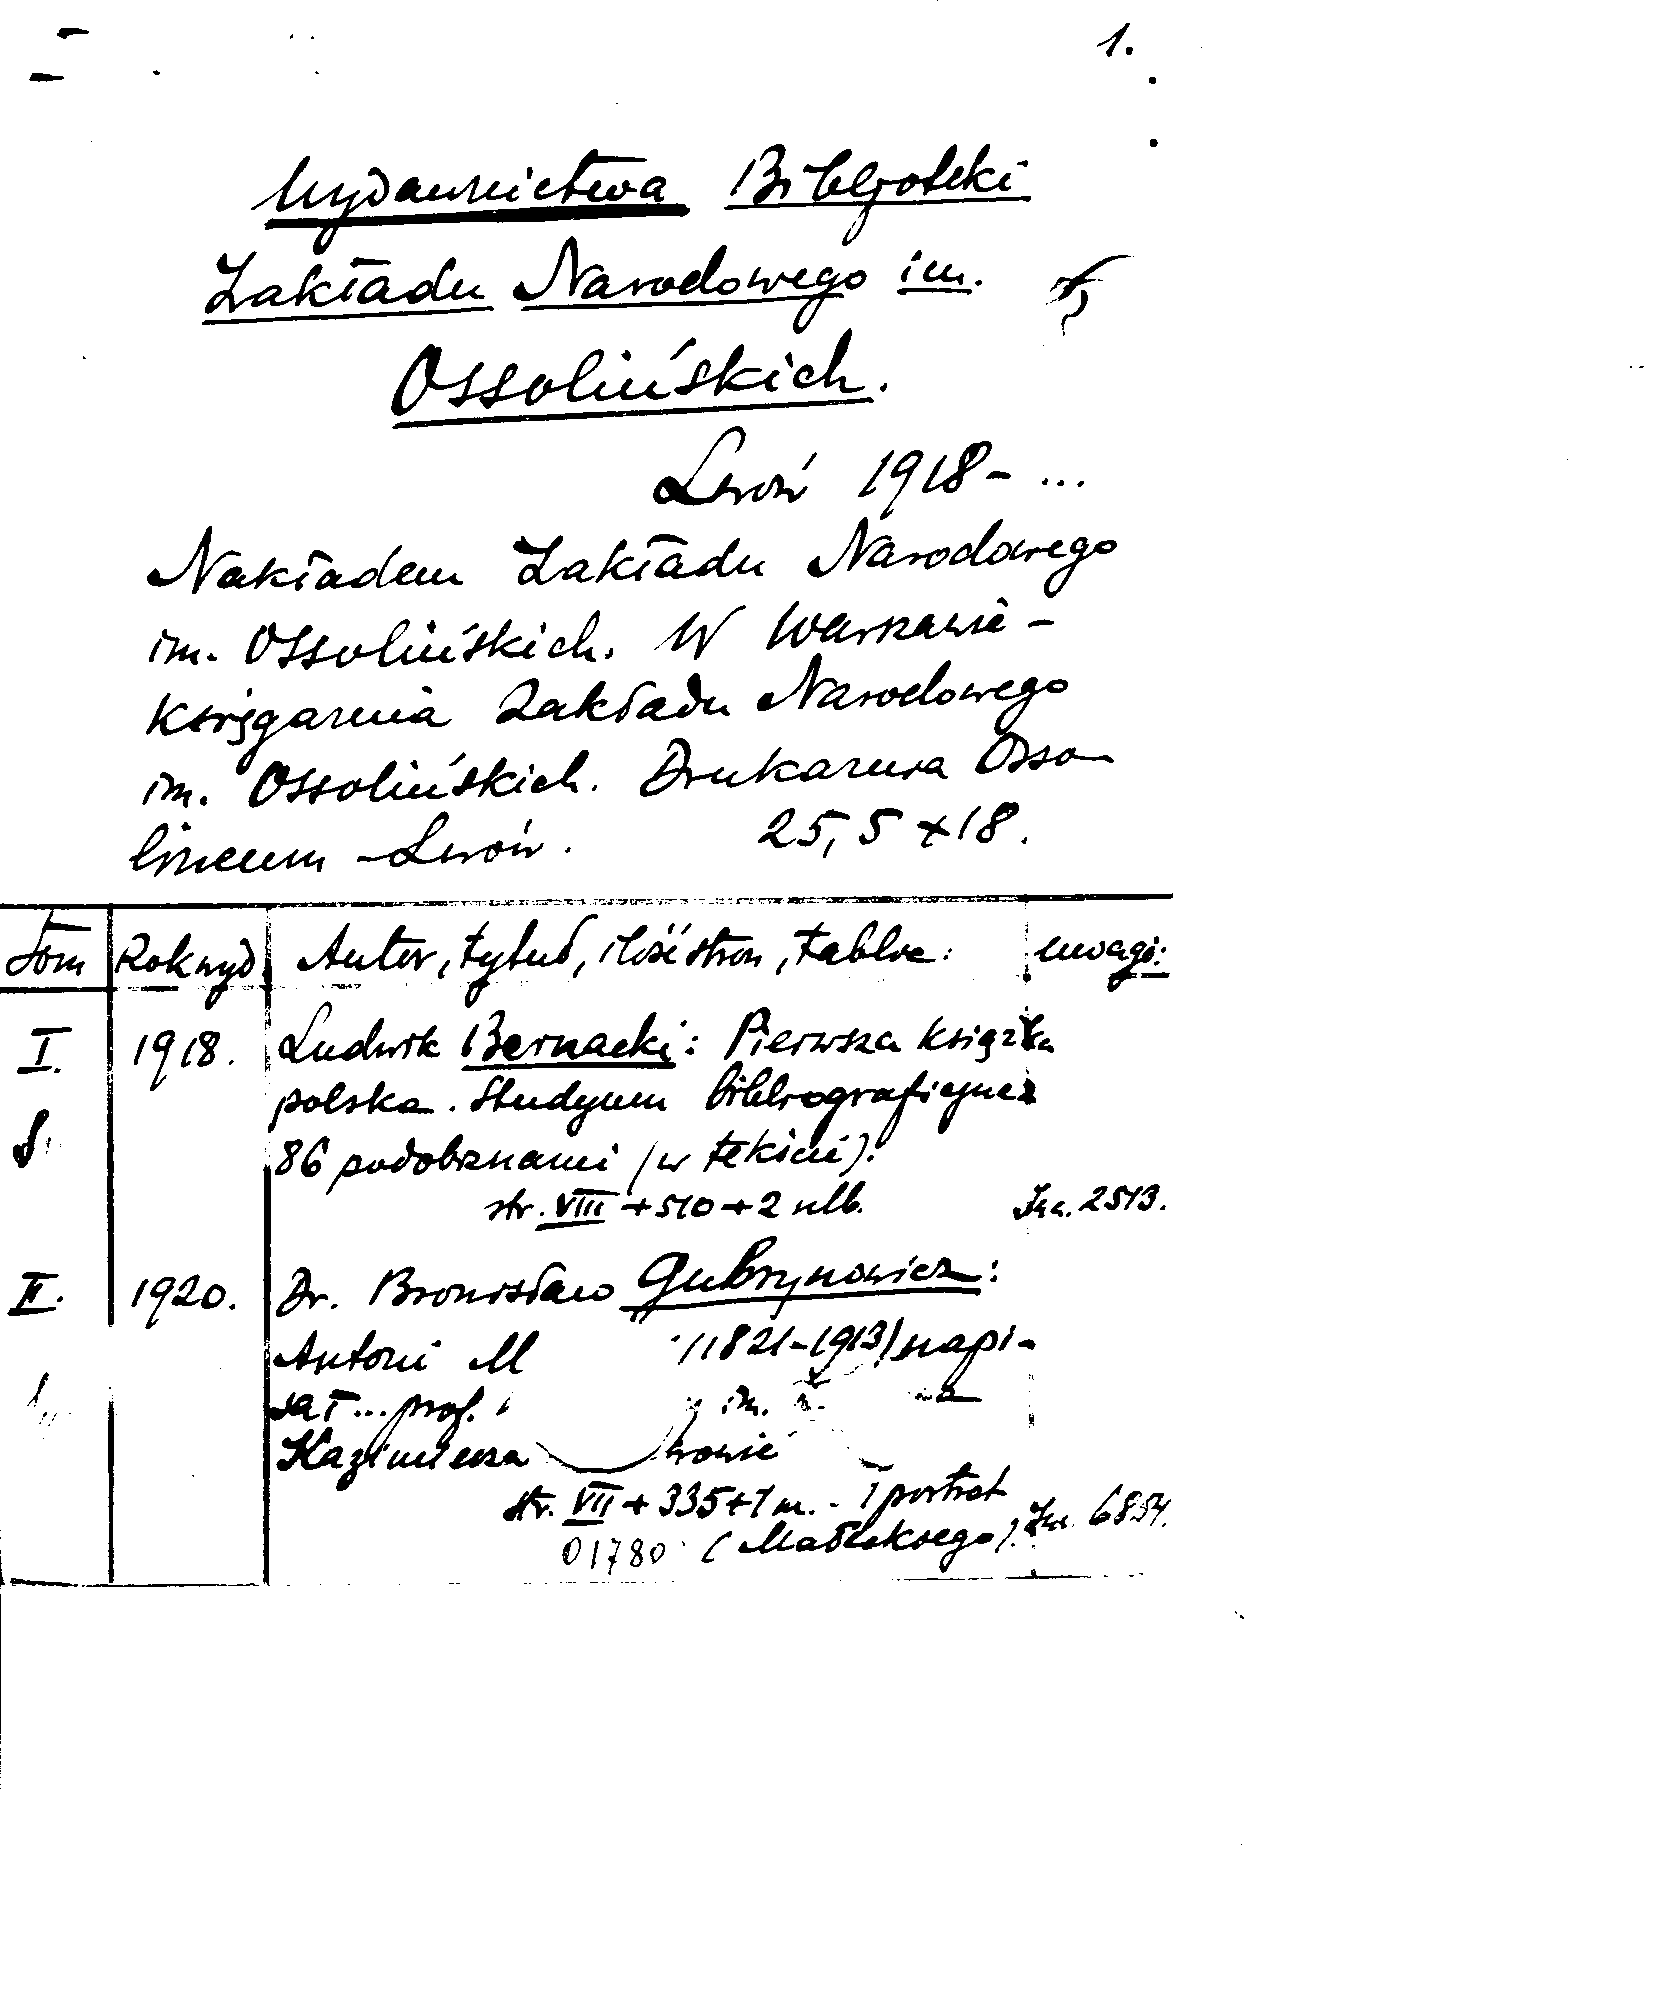 1.
Wydawnictwa Bibljoteki
Zakładu Narodowego im.
Ossolińskich.
Lwów 1918 - ...
Nakładem Zakładu Narodowego
im. Ossolińskich. W Warszawie -
księgarnia Zakładu Narodowego
im. Ossolińskich. Drukarnia Osso-
lineum - Lwów. 25,5 x 18.
Tom Rok wyd. Autor, tytuł, ilość stron, tablic: uwagi:
I. 1918. Ludwik Bernacki: Pierwsza książka
polska. Studyum bibliograficzne z
86 podobiznami (w tekście).
str. VIII + 510 + 2 nlb. Inw. 2513.
II. 1920. Dr. Bronisław Gubrynowicz:
Antoni M (1821-1913) napi-
sał ... prof. im.
Kazimierza
str. VII + 335 + 1 nl. - 1 portret
01780 (Małeckiego). Inw. 6854.